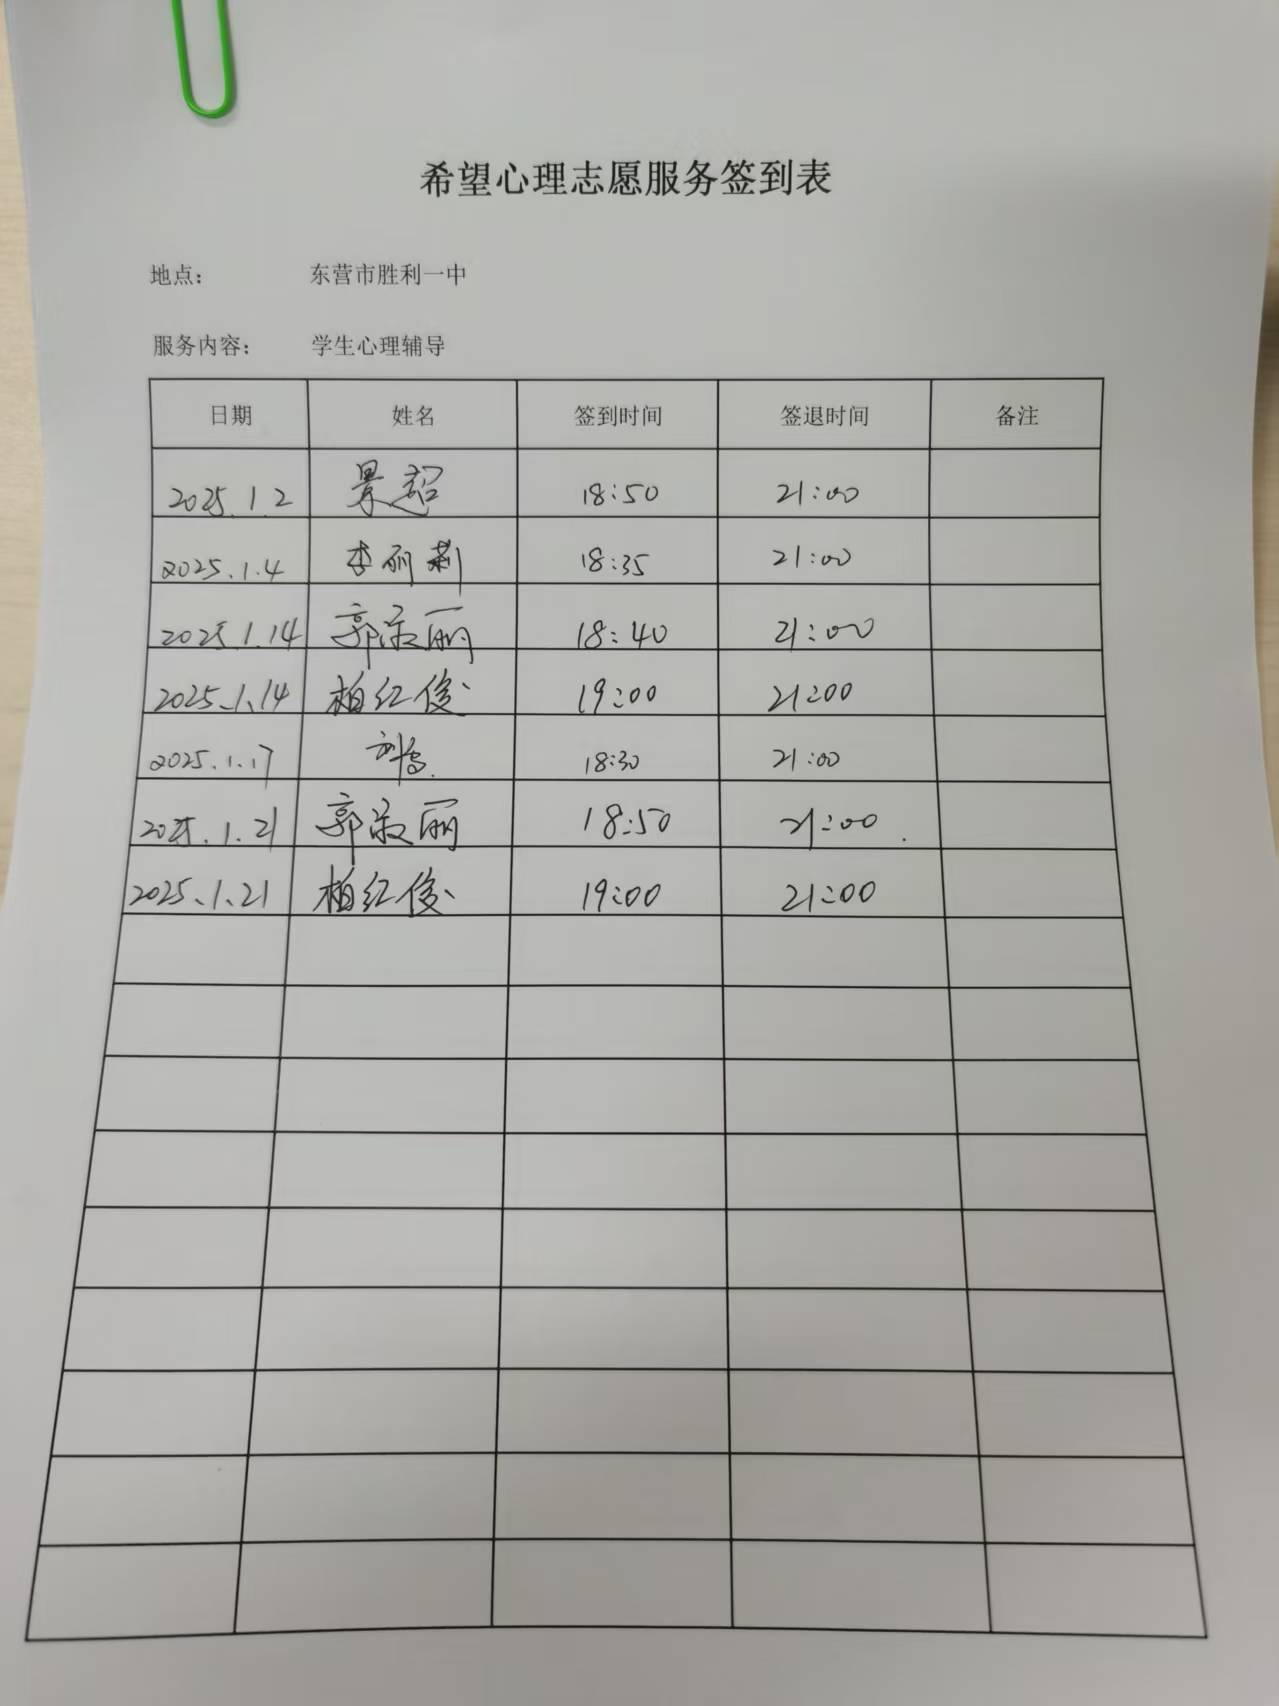 希望心理志愿服务签到表
地点： 东营市胜利一中
服务内容： 学生心理辅导
日期 姓名 签到时间 签退时间 备注
2025.1.2 景超 18:50 21:00
2025.1.4 李丽莉 18:35 21:00
2025.1.14 郭淑丽 18:40 21:00
2025.1.14 柏红俊 19:00 21:00
2025.1.17 18:30 21:00
2025.1.21 郭淑丽 18:50 21:00
2025.1.21 柏红俊 19:00 21:00